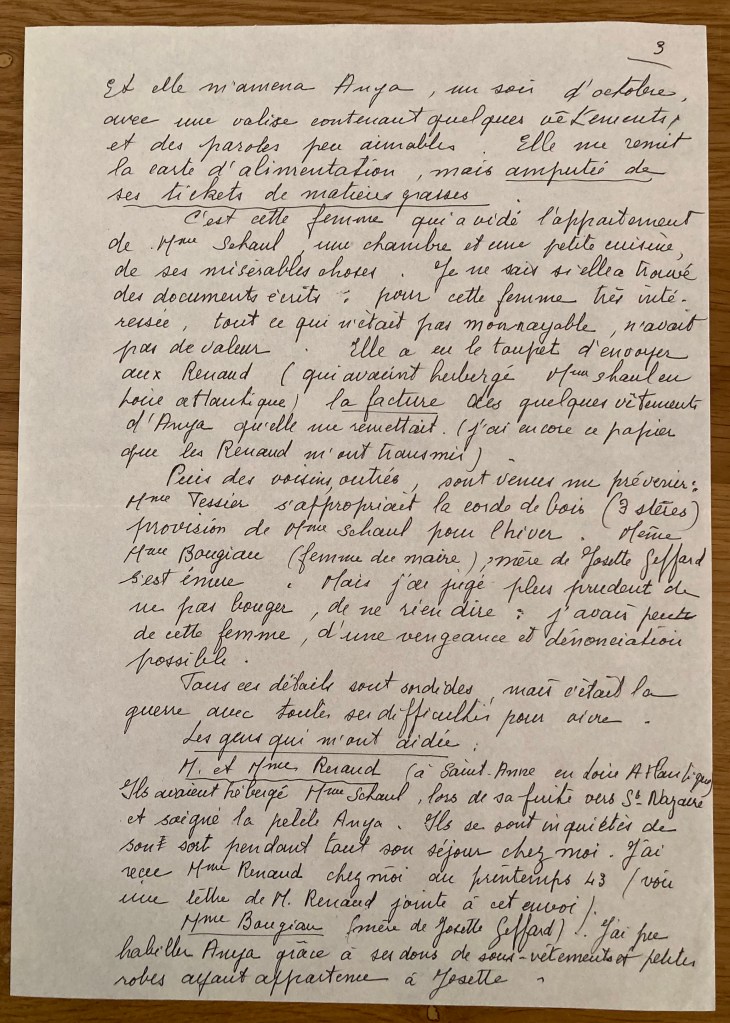 3
Et elle m'amena Anya, un soir d'octobre,
avec une valise contenant quelques vêtements,
et des paroles peu aimables. Elle me remit
la carte d'alimentation, mais amputée de
ses tickets de matières grasses.
C'est cette femme qui a vidé l'appartement
de Mme Schaul, une chambre et une petite cuisine,
de ses misérables choses. Je ne sais si elle a trouvé
des documents écrits : pour cette femme très inté-
ressée, tout ce qui n'était pas monnayable, n'avait
pas de valeur. Elle a eu le toupet d'envoyer
aux Renaud (qui avaient hébergé Mme Schaul en
Loire Atlantique) la facture des quelques vêtements
d'Anya qu'elle me remettait. (j'ai encore ce papier
que les Renaud m'ont transmis).
Puis des voisins, outrés, sont venus me prévenir :
Mme Tessier s'appropriait la corde de bois (3 stères)
provision de Mme Schaul pour l'hiver. Même
Mme Bougiau (femme du maire), mère de Josette Geffard
s'est émue. Mais j'ai jugé plus prudent de
ne pas bouger, de ne rien dire : j'avais peur
de cette femme, d'une vengeance et dénonciation
possible.
Tous ces détails sont sordides, mais c'était la
guerre avec toutes ses difficultés pour vivre.
Les gens qui m'ont aidée :
M. et Mme Renaud (à Saint-Anne en Loire Atlantique)
Ils avaient hébergé Mme Schaul, lors de sa fuite vers St Nazaire
et soigné la petite Anya. Ils se sont inquiétés de
son sort pendant tout son séjour chez moi. J'ai
reçu Mme Renaud chez moi au printemps 43 (voir
une lettre de M. Renaud jointe à cet envoi).
Mme Bougiau (mère de Josette Geffard). J'ai pu
habiller Anya grâce à ses dons de sous-vêtements et petites
robes ayant appartenu à Josette.